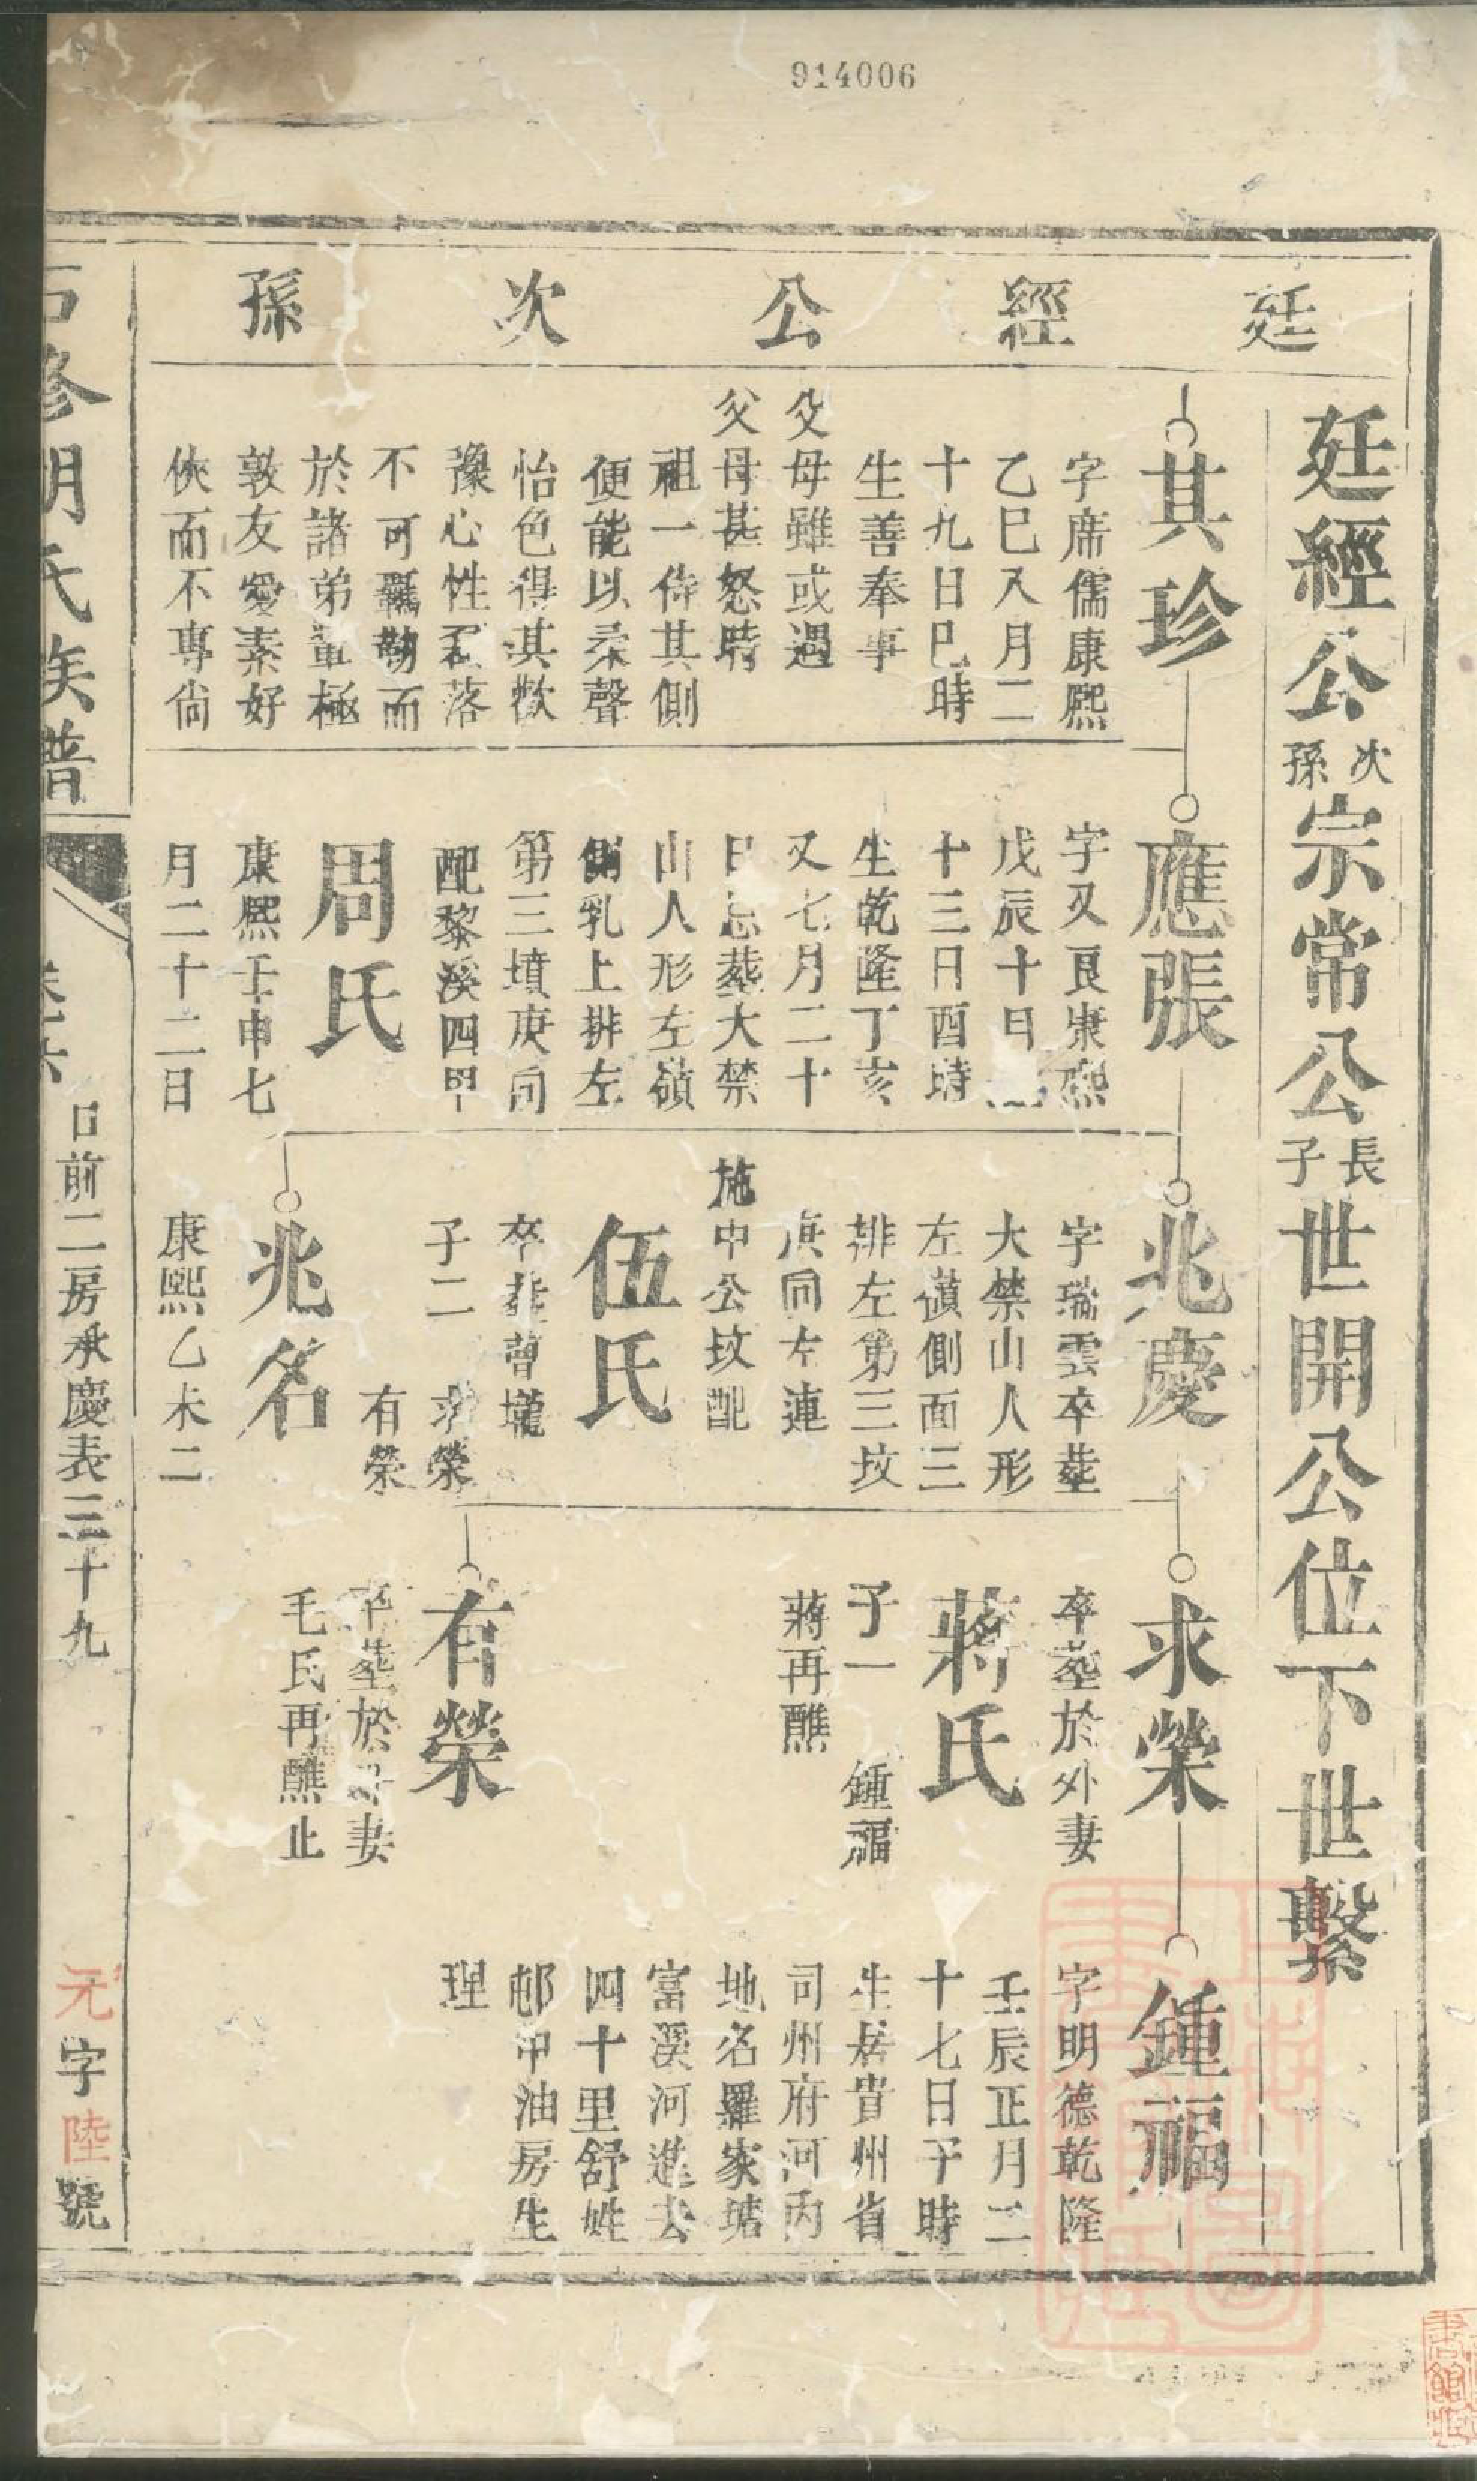 914006
廷經公次孫
廷經公次孫宗常公長子世開公位下世繫
其珍
字席儒康熙
乙巳又月二
十九日巳時
生善奉事
父母雖或遇
父母甚怒時
祖一侍其側
便能以柔聲
怡色得其歡
豫心性磊落
不可羈勒而
於諸弟輩極
敦友愛素好
俠而不專尙
應張
字又良康熙
戊辰十月
十三日酉時
生乾隆丁亥
又七月二十
日忌葬大禁
山人形左嶺
側乳上排左
第三墳庚向
配黎溪四甲
周氏
康熙壬申七
月二十二日
兆慶
字瑞雲卒葬
大禁山人形
左嶺側面三
排左第三坟
庚向左連
施中公坟配
伍氏
卒葬曹壠
子二 求榮
有榮
兆名
康熙乙未二
求榮
卒葬於外妻
蔣氏
子一 鍾福
蔣再醮
有榮
卒葬於外妻
毛氏再醮止
鍾福
字明德乾隆
壬辰正月二
十七日子時
生居貴州省
司州府河內
地名羅家塘
富溪河進去
四十里舒姓
邨中油房生
理
修胡氏族譜
前二房承慶表三十九
元字陸號